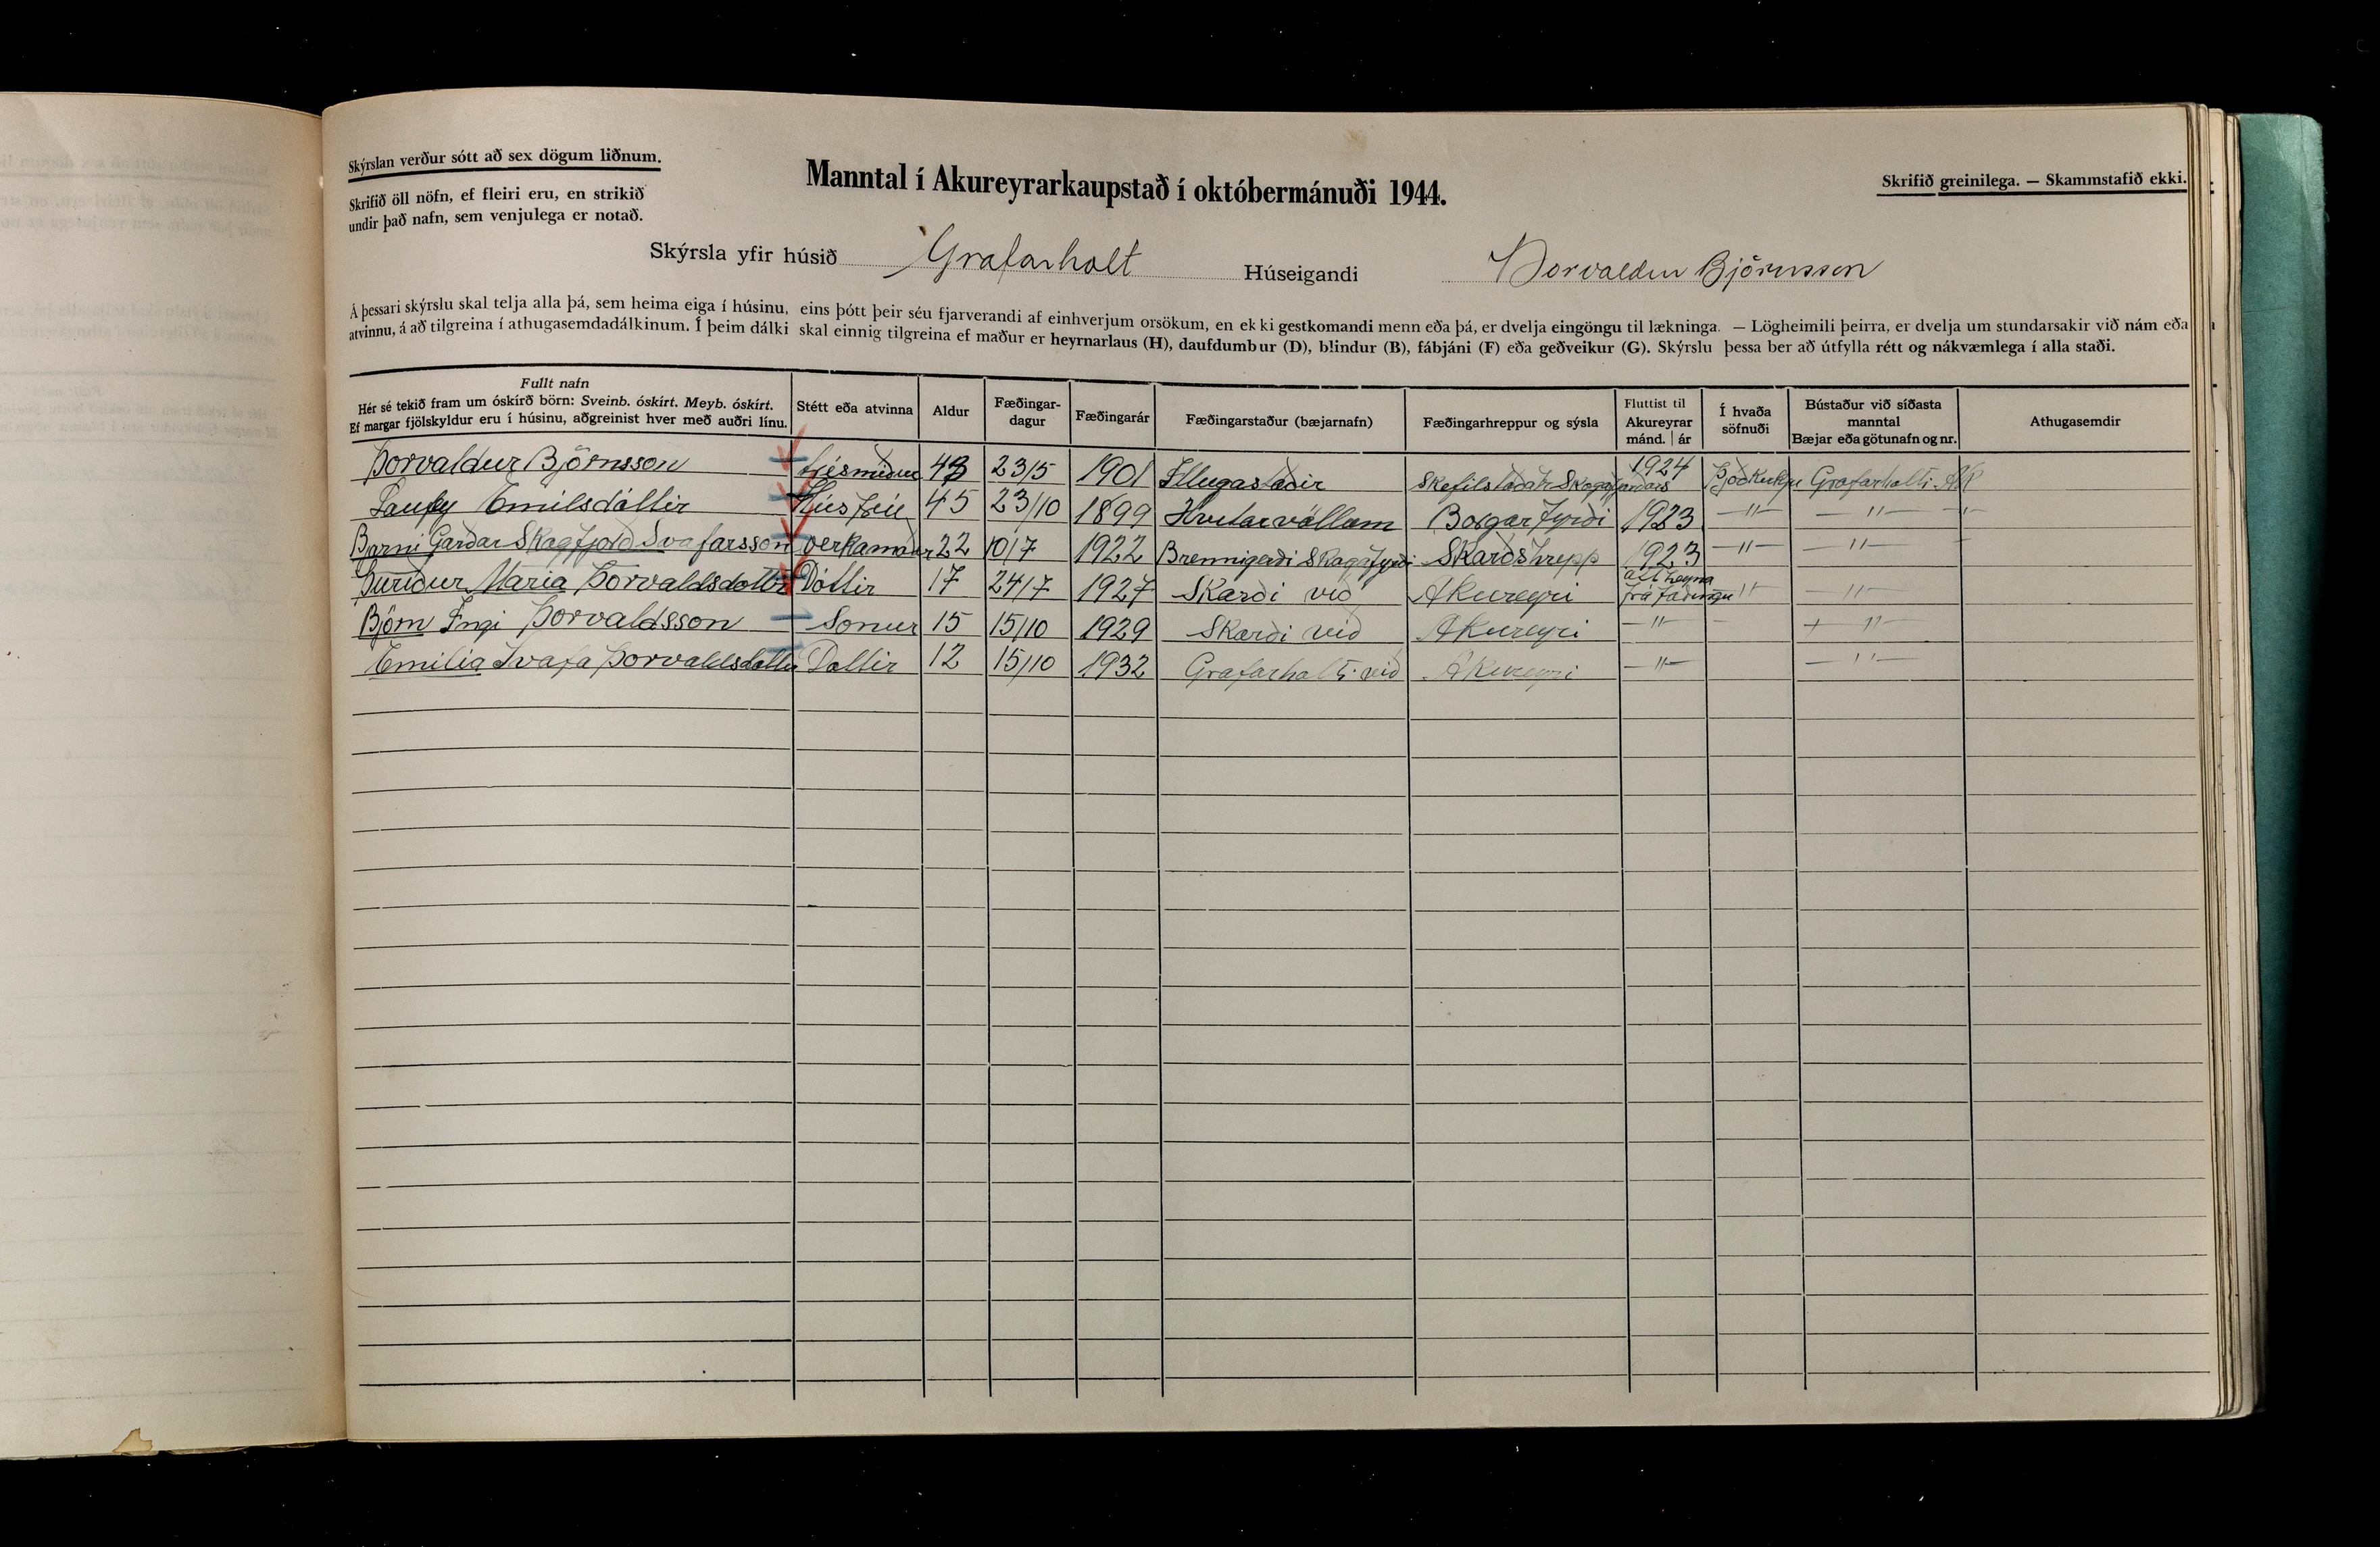 Skýrslan verður sótt að sex dögum liðnum.
Skrifið öll nöfn, ef fleiri eru, en strikið
undir það nafn, sem venjulega er notað.
Manntal í Akureyrarkaupstað í októbermánuði 1944.
Skrifið greinilega. — Skammstafið ekki.
Skýrsla yfir húsið Grafarholt Húseigandi Þorvaldur Björnsson
Á þessari skýrslu skal telja alla þá, sem heima eiga í húsinu, eins þótt þeir séu fjarverandi af einhverjum orsökum, en ekki gestkomandi menn eða þá, er dvelja eingöngu til lækninga. — Lögheimili þeirra, er dvelja um stundarsakir við nám eða
atvinnu, á að tilgreina í athugasemdadálkinum. Í þeim dálki skal einnig tilgreina ef maður er heyrnarlaus (H), daufdumbur (D), blindur (B), fábjáni (F) eða geðveikur (G). Skýrslu þessa ber að útfylla rétt og nákvæmlega í alla staði.
Fullt nafn
Hér sé tekið fram um óskírð börn: Sveinb. óskírt. Meyb. óskírt.
Ef margar fjölskyldur eru í húsinu, aðgreinist hver með auðri línu.
Stétt eða atvinna
Aldur
Fæðingar-
dagur
Fæðingarár
Fæðingarstaður (bæjarnafn)
Fæðingarhreppur og sýsla
Fluttist til
Akureyrar
mánd. | ár
Í hvaða
söfnuði
Bústaður við síðasta
manntal
Bæjar eða götunafn og nr.
Athugasemdir
Þorvaldur Björnsson trésmiður 43 23/5 1901 Illugastaðir 1924 Grafarholti Ak
Laufey Emilsdóttir Húsfrú 45 23/10 1899 Hvítarvöllum Borgarfyrði 1923 —"— —"— —"—
Bjarni Garðar Skagfjorð Svafarsson verkamaður 22 10/7 1922 Brennigerði Skagafyrði Skarðshrepp 1923 —"— —"—
Þuríður Maria Þorvaldsdottir Dóttir 17 24/7 1927 Skarði við Akureyri átt heyma frá fæðingu " —"—
Björn Ingi Þorvaldsson Sonur 15 15/10 1929 Skarði við Akureyri —"— — —"—
Emilía Svafa Þorvaldsdottir Dottir 12 15/10 1932 Grafarholti við Akureyri —"— —"—